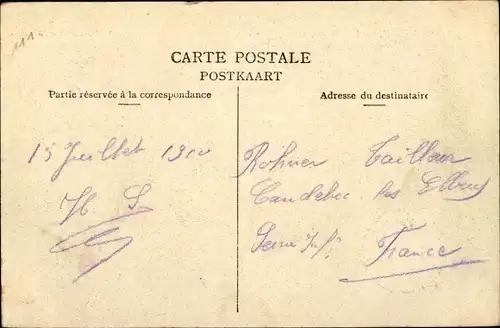 111
CARTE POSTALE
POSTKAART
Partie réservée à la correspondance
Adresse du destinataire
15 Juillet 1910
H S
Rohner Tailleur
Caudebec les Elbeuf
Seine Infre
France